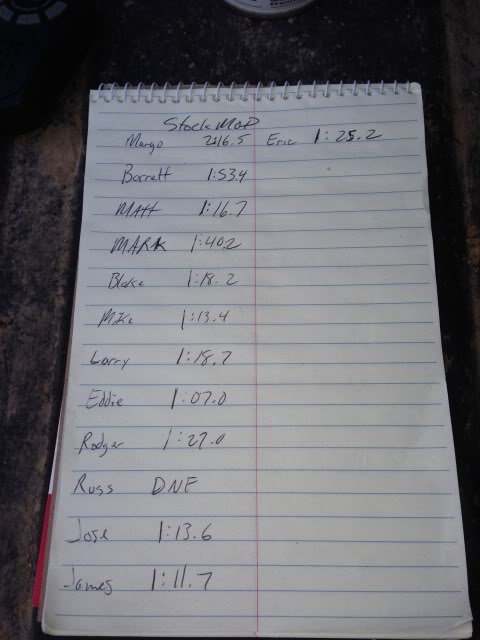 Stock Mod
Margo 2:16.5 Eric 1:25.2
Barrett 1:53.4
MATT 1:16.7
MARK 1:40.2
Blake 1:18.2
Mike 1:13.4
Larry 1:18.7
Eddie 1:07.0
Rodger 1:27.0
Russ DNF
Jose 1:13.6
James 1:11.7